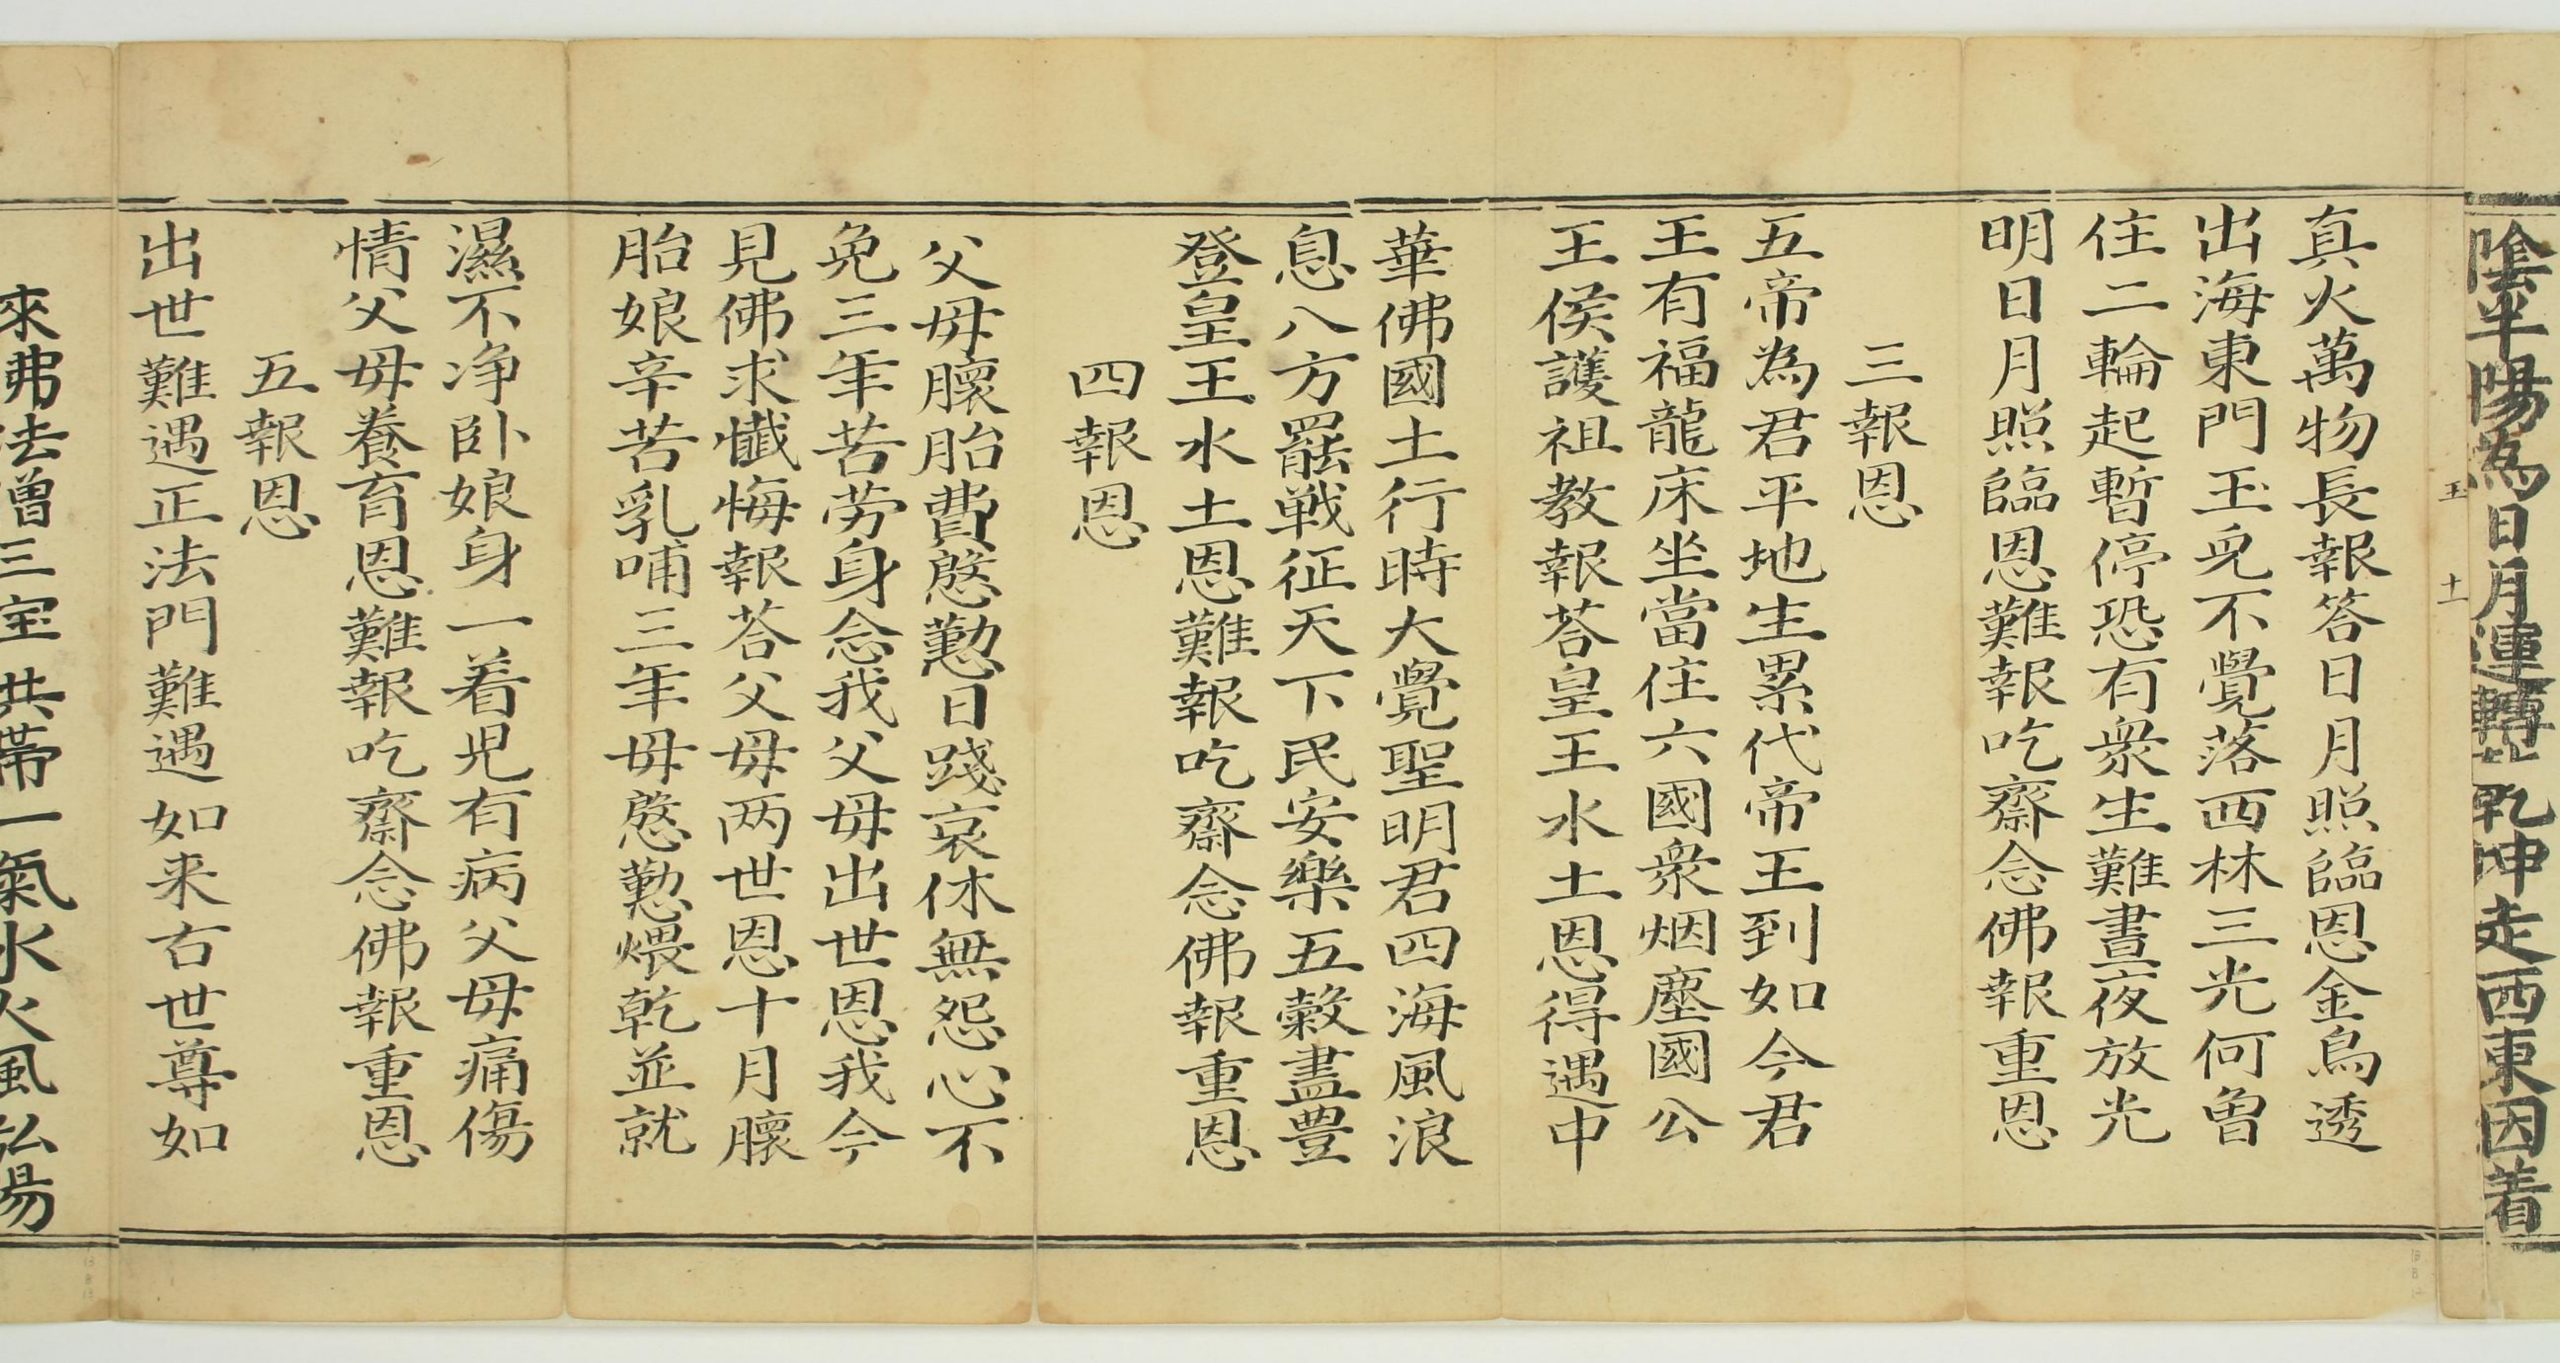 陰平陽為日月運轉乾坤走西東因着
玉 十一
真火萬物長報答日月照臨恩金烏透
出海東門玉兎不覺落西林三光何曾
住二輪起暫停恐有衆生難晝夜放光
明日月照臨恩難報吃齋念佛報重恩
三報恩
五帝為君平地生累代帝王到如今君
王有福龍床坐當住六國衆烟塵國公
王侯護祖教報荅皇王水土恩得遇中
華佛國土行時大覺聖明君四海風浪
息八方罷戰征天下民安樂五穀盡豊
登皇王水土恩難報吃齋念佛報重恩
四報恩
父母懷胎費慇懃日踐哀休無怨心不
免三年苦劳身念我父母出世恩我今
見佛求懺悔報荅父母两世恩十月懷
胎娘辛苦乳哺三年母慇懃煨乾並就
濕不净卧娘身一着児有病父母痛傷
情父母養育恩難報吃齋念佛報重恩
五報恩
出世難遇正法門難遇如来古世尊如
來弗法僧三宝共帶一氣水火風弘陽